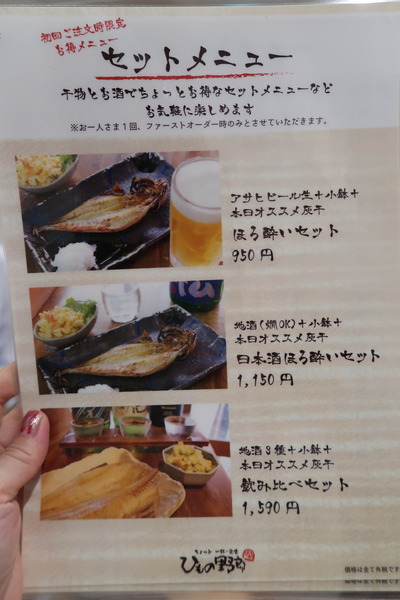 初回ご注文時限定
お得メニュー
セットメニュー
干物とお酒でちょっとお得なセットメニューなど
お気軽に楽しめます
※お一人さま1回、ファーストオーダー時のみとさせていただきます。
アサヒビール生+小鉢+
本日オススメ灰干
ほろ酔いセット
950円
地酒(燗OK)+小鉢+
本日オススメ灰干
日本酒ほろ酔いセット
1,150円
地酒3種+小鉢+
本日オススメ灰干
飲み比べセット
1,590円
ひもの野郎
価格は全て外税です
価格は全て外税です